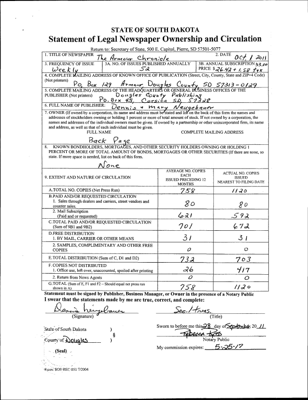 STATE OF SOUTH DAKOTA
Statement of Legal Newspaper Ownership and Circulation
Return to: Secretary of State, 500 E. Capitol, Pierre, SD 57501-5077
1. TITLE OF NEWSPAPER The Armour Chronicle 2. DATE Oct 1 2011
3. FREQUENCY OF ISSUE Weekly 3A. NO. OF ISSUES PUBLISHED ANNUALLY 52 3B. ANNUAL SUBSCRIPTION PRICE
4. COMPLETE MAILING ADDRESS OF KNOWN OFFICE OF PUBLICATION (Street, City, County, State and ZIP+4 Code)
(Not printers) PO Box 129 Armour Douglas County SD 57313-0129
5. COMPLETE MAILING ADDRESS OF THE HEADQUARTERS OF GENERAL BUSINESS OFFICES OF THE
PUBLISHER (Not printer) Douglas County Publishing
P.O. Box 45, Corsica SD 57328
6. FULL NAME OF PUBLISHER:
7. OWNER (If owned by a corporation, its name and address must be stated and
FULL NAME COMPLETE MAILING ADDRESS
Back Page
8. KNOWN BONDHOLDERS, MORTGAGEES, AND OTHER SECURITY HOLDERS OWNING OR HOLDING 1
PERCENT OR MORE OF TOTAL AMOUNT OF BONDS, MORTGAGES OR OTHER SECURITIES (If there are none, so
state. If more space is needed, list on back of this form.
None
9. EXTENT AND NATURE OF CIRCULATION
AVERAGE NO. COPIES EACH ISSUED PRECEDING 12 MONTHS
ACTUAL NO. COPIES ISSUED NEAREST TO FILING DATE
A. TOTAL NO. COPIES (Net Press Run) 758 1120
B. PAID AND/OR REQUESTED CIRCULATION
1. Sales through dealers and carriers, street vendors and counter sales 80 80
2. Mail Subscription (Paid and or requested) 621 592
C. TOTAL PAID AND/OR REQUESTED CIRCULATION (Sum of 9B1 and 9B2) 701 672
D. FREE DISTRIBUTION
1. BY MAIL, CARRIER OR OTHER MEANS 31 31
2. SAMPLES, COMPLIMENTARY AND OTHER FREE COPIES 0 0
E. TOTAL DISTRIBUTION (Sum of C, D1 and D2) 732 703
F. COPIES NOT DISTRIBUTED
1. Office use, left over, unaccounted, spoiled after printing 26 417
2. Return from News Agents 0 0
G. TOTAL (Sum of E, F1 and F2 - Should equal net press run shown in A) 758 1120
Statement must be signed by Publisher, Business Manager, or Owner in the presence of a Notary Public
I swear that the statements made by me are true, correct, and complete:
(Signature) (Title)
State of South Dakota )
§
County of Douglas )
(Seal)
Sworn to before me this 28 day of September 20 11
Notary Public
My commission expires: 5-25-17